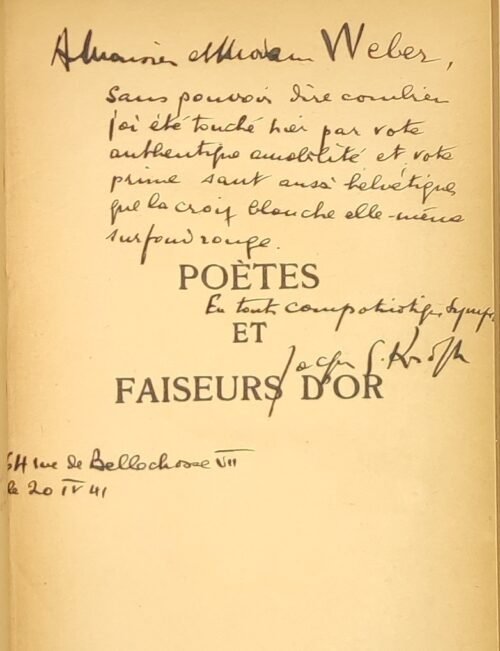 A Monsieur et Madame Weber,
sans pouvoir dire combien
j'ai été touché hier par votre
authentique amabilité et votre
prime saut aussi helvétique
que la croix blanche elle-même
sur fond rouge.
POÈTES
En toute compatriotique symp
ET
Jacques
FAISEURS D'OR
54 rue de Bellechasse VII
le 20 IV 41